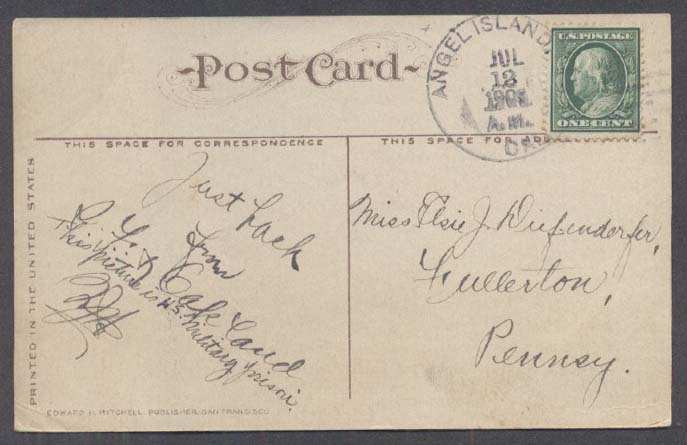 Post Card
ANGEL ISLAND,
JUL
12
A.M.
U.S. POSTAGE
ONE CENT
THIS SPACE FOR CORRESPONDENCE
THIS SPACE FOR
PRINTED IN THE UNITED STATES
Just back
from
Oakland
This picture is U.S. Military prison.
Miss Elsie J. Diefenderfer,
Fullerton,
Penney.
EDWARD H. MITCHELL, PUBLISHER, SAN FRANCISCO